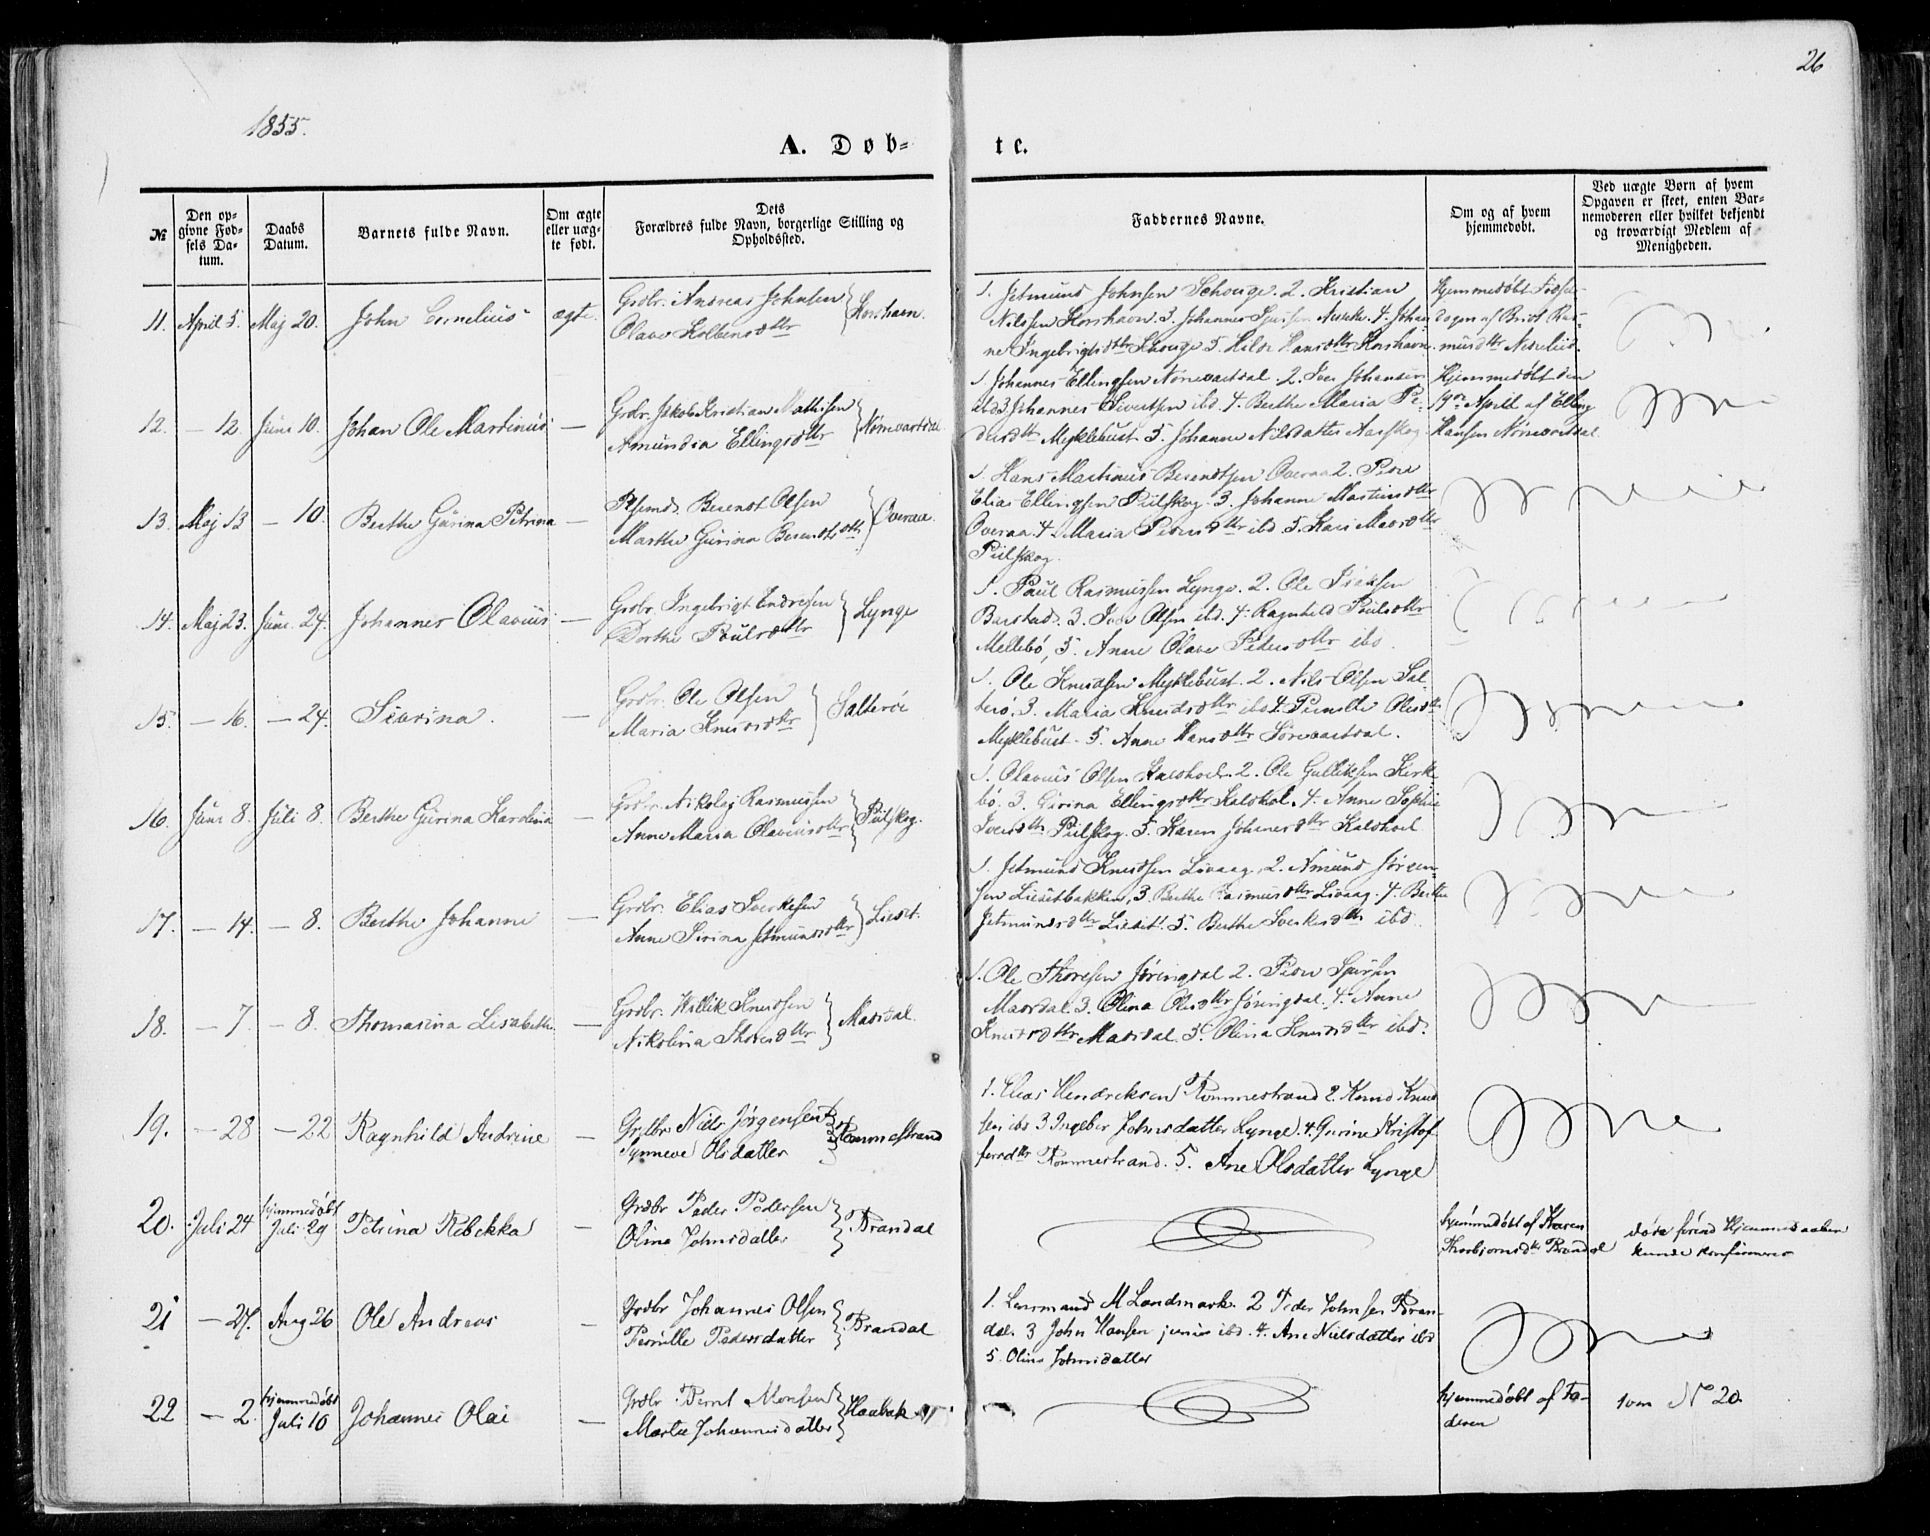 26
1855.
A. Døb-
te.
№
Den op-
givne Fød-
sels Da-
tum.
Daabs
Datum.
Barnets fulde Navn.
Om ægte
eller uæg-
te født.
Dets
Forældres fulde Navn, borgerlige Stilling og
Opholdssted.
Faddernes Navne.
Om og af hvem
hjemmedøbt.
Ved uægte Børn af hvem
Opgaven er skeet, enten Bar-
nemoderen eller hvilket bekjendt
og troværdigt Medlem af
Menigheden.
11. April 5. Maj 20. John Cornelius ægte.
Grdbr. Andreas Johnsen
Olave Kolbensdttr
Korshavn.
1. Jetmund Johnsen Schouge. 2. Kristian
Nilssen Korshavn 3. Johannes 4. Johan-
ne Ingebrigtsdttr Schouge 5. Hilde Hansdttr Korshavn.
Hjemmedøbt
af Brit Ras-
musdttr
12. — 12. Juni 10. Johan Ole Martinus —
Grdbr. Jakob Kristian Mathisen
Amundia Ellingsdttr
Nørrevartdal
1. Johannes Ellingsen Nørrevartdal. 2. Iver Johansen
ibd 3. Johannes Sivertsen ibd. 4. Berthe Maria Pe-
dersdttr Myklebust 5. Johanne Nilsdatter Aarskog
Hjemmedøbt den
April af Elling
Hansen Nørrevartdal.
13. Maj 13 — 10. Berthe Gurina Petrina —
Plsmd. Berendt Olsen
Marthe Gurina Berendtsdttr
Overaa.
1. Hans Martinus Berendtsen Overaa 2. Peder
Elias Ellingsen Pilskog. 3. Johanne Martinsdttr
Overaa. 4. Maria Pedersdttr ibd 5. Kari Madsdttr
Pilskog.
14. Maj 23. Juni 24. Johannes Olavius —
Grdbr. Ingebrigt Endresen
Dorthe Poulsdttr
Lynge
1. Paul Rasmussen Lynge. 2. Ole Isaksen
Barstad. 3. Iver Olsen ibd. 4. Ragnhild Poulsdttr
Mellebø, 5. Anne Olave Pedersdttr ibd.
15. — 16. — 24. Sivrina. —
Grdbr. Ole Olsen
Maria Knudsdttr
Salterøe
1. Ole Knudsen Myklebust. 2. Nils Olsen Sal-
terø, 3. Maria Knudsdttr ibd 4. Pernille Olesdttr
Myklebust. 5. Anne Hansdttr Sørevartdal.
16. Juni 8. Juli 8. Berthe Gurina Karolina —
Grdbr. Nikolaj Rasmussen
Anne Maria Olaviusdttr
Pilskog.
1. Olavius Olsen Kalshoel. 2. Ole Gulliksen Kirke-
bø. 3. Gurina Ellingsdttr Kalshol. 4. Anne Sophie
Iversdttr Pilskog. 5. Karen Johnesdttr Kalshoel
17. — 14. — 8. Berthe Johanne —
Grdbr. Elias Sverkesen
Anne Sirina Jetmundsdttr
Liset.
1. Jetmund Knudsen Livaag. 2. Amund Jørgen-
sen Lisetbakken, 3. Berthe Rasmusdttr Livaag. 4. Berthe
Jetmundsdttr Liset. 5. Berthe Sverkesdttr ibd.
18. — 7. — 8. Thomasina Lisabeth. —
Grdbr. Willik Knudsen
Nikolina Thoresdttr
Masdal.
1. Ole Thoresen Jøringdal 2. Peder Sjursen
Masdal. 3. Olina Olesdttr Jøringdal. 4. Anne
Knudsdttr Masdal. 5. Olina Knudsdttr ibd.
19. — 28 — 22 Ragnhild Andrine —
Grdbr Niels Jørgensen
Synneve Olsdatter
Rommestrand
1. Elias Hendriksen Rommestrand 2 Knud Knud
sen ibd 3 Ingeber Johnsdatter Lynge. 4. Gurine Kristof-
fersdtr Rommestrand. 5. Ane Olsdatter Lynge
20. Juli 24 hjemmedøbt
Juli 29 Petrina Rebekka —
Grdbr Peder Pedersen
Oline Johnsdatter
Brandal
hjemmedøbt af Karen
Thorbjørnsdtr Brandal
døde førend Hjemmedaaben
kunde konfirmeres
21 — 27. Aug 26 Ole Andreas —
Grdbr Johannes Olsen
Pernille Pedersdatter
Brandal
1. Lensmand M Landmark. 2 Peder Johnsen Bran-
dal. 3 John Hansen junior ibd. 4. Ane Nielsdatter ibd
5. Oline Johnsdatter
22 — 2. hjemmedøbt
Juli 10 Johannes Olai —
Grdbr Bernt Monsen
Marte Johannesdatter
Haabak
hjemmedøbt af Fa-
deren
som № 20.